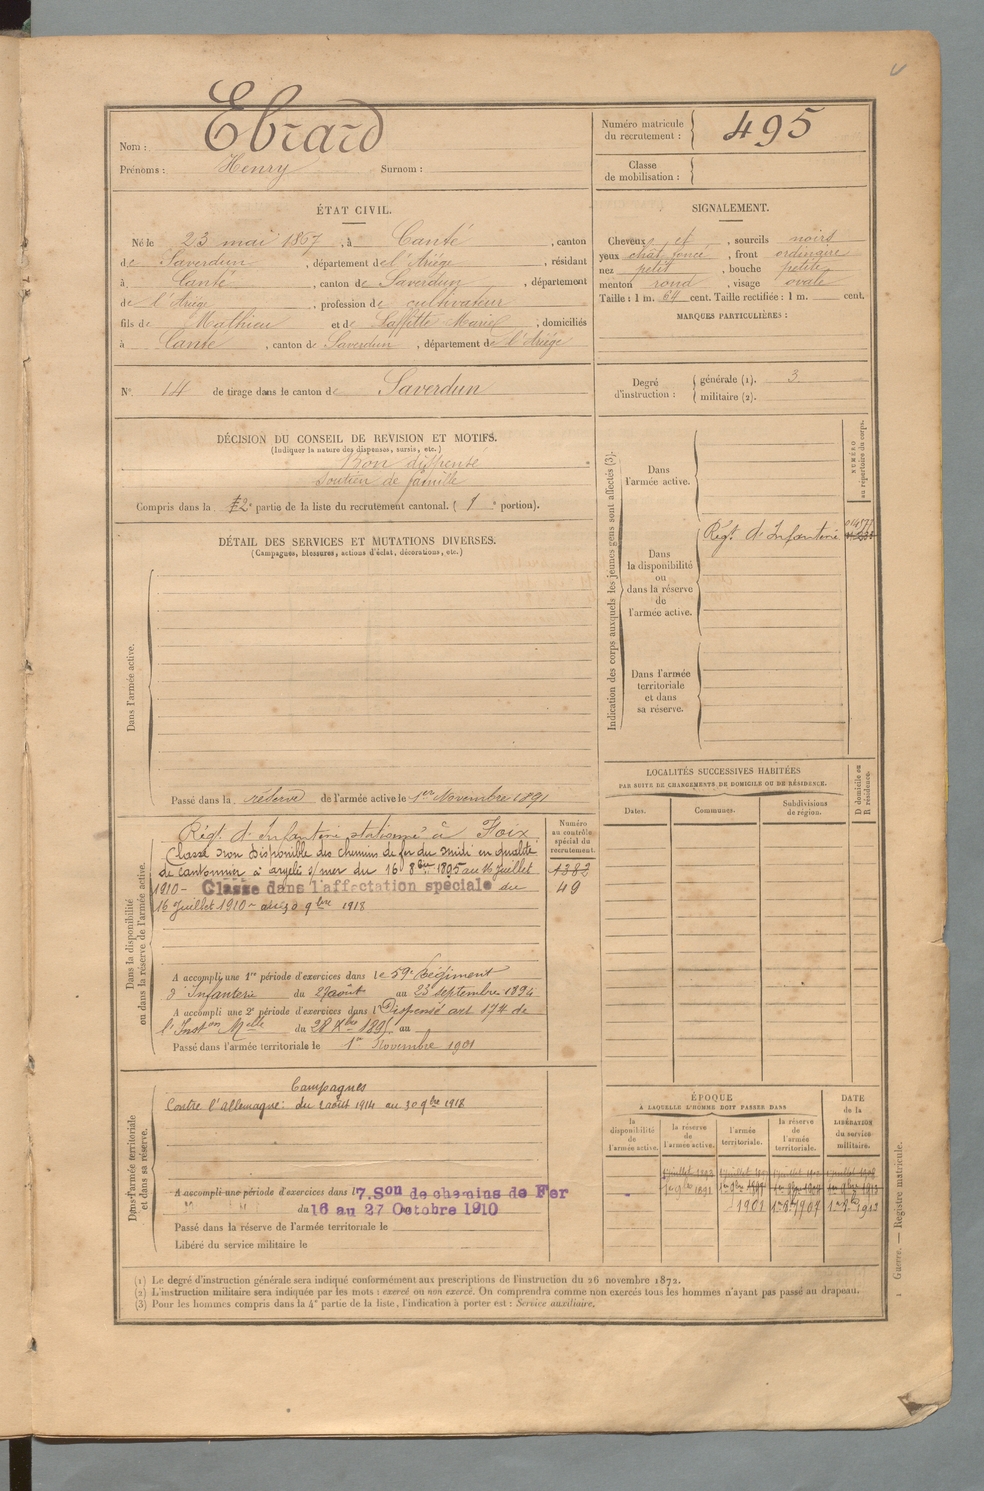 Nom : Ebrard
Prénoms : Henry Surnom :
Numéro matricule du recrutement : 495
Classe de mobilisation :
ÉTAT CIVIL.
Né le 23 mai 1867, à Canté, canton
de Saverdun, département de l'Ariège, résidant
à Canté, canton de Saverdun, département
de l'Ariège, profession de cultivateur
fils de Mathieu et de Laffitte Marie, domiciliés
à Canté, canton de Saverdun, département de l'Ariège
N° 14 de tirage dans le canton de Saverdun
SIGNALEMENT.
Cheveux et, sourcils noirs
yeux chat. foncé, front ordinaire
nez petit, bouche petite
menton rond, visage ovale
Taille : 1 m. 64 cent. Taille rectifiée : 1 m. cent.
MARQUES PARTICULIÈRES :
Degré d'instruction : générale (1). 3
militaire (2).
DÉCISION DU CONSEIL DE REVISION ET MOTIFS.
(Indiquer la nature des dispenses, sursis, etc.)
Bon dispensé
Soutien de famille
Compris dans la 2e partie de la liste du recrutement cantonal. ( 1e portion).
DÉTAIL DES SERVICES ET MUTATIONS DIVERSES.
(Campagnes, blessures, actions d'éclat, décorations, etc.)
Dans l'armée active.
Passé dans la réserve de l'armée active le 1er Novembre 1891
Indication des corps auxquels les jeunes gens sont affectés (3).
NUMÉRO au répertoire du corps.
Dans l'armée active.
Dans la disponibilité ou dans la réserve de l'armée active.
Régt. d'Infanterie
Dans l'armée territoriale et dans sa réserve.
LOCALITÉS SUCCESSIVES HABITÉES
PAR SUITE DE CHANGEMENTS DE DOMICILE OU DE RÉSIDENCE.
Dates. Communes. Subdivisions de région.
D domicile ou R résidence.
Dans la disponibilité ou dans la réserve de l'armée active.
Numéro au contrôle spécial du recrutement.
1383
49
Régt. d'Infanterie stationné à Foix
Classé non disponible des chemins de fer du midi en qualité
de cantonnier à argelès s/mer du 16 8bre 1895 au 16 Juillet
1910 - Classe dans l'affectation spéciale du
16 Juillet 1910 au 30 9bre 1918
A accompli une 1re période d'exercices dans le 59e Régiment
d'Infanterie du 27 août au 23 septembre 1894
A accompli une 2e période d'exercices dans l Dispensé art 174 de
l'Inston Melle du 28 Xbre 189 au
Passé dans l'armée territoriale le 1er Novembre 1901
Dans l'armée territoriale et dans sa réserve.
Campagnes
Contre l'allemagne: du 2 août 1914 au 30 9bre 1918
A accompli une période d'exercices dans l 7.Son de chemins de Fer
du 16 au 27 Octobre 1910
Passé dans la réserve de l'armée territoriale le
Libéré du service militaire le
ÉPOQUE
À LAQUELLE L'HOMME DOIT PASSER DANS
la disponibilité de l'armée active.
la réserve de l'armée active.
l'armée territoriale.
la réserve de l'armée territoriale.
DATE de la LIBÉRATION du service militaire.
1901
(1) Le degré d'instruction générale sera indiqué conformément aux prescriptions de l'instruction du 26 novembre 1872.
(2) L'instruction militaire sera indiquée par les mots : exercé ou non exercé. On comprendra comme non exercés tous les hommes n'ayant pas passé au drapeau.
(3) Pour les hommes compris dans la 4e partie de la liste, l'indication à porter est : Service auxiliaire.
Guerre. — Registre matricule.